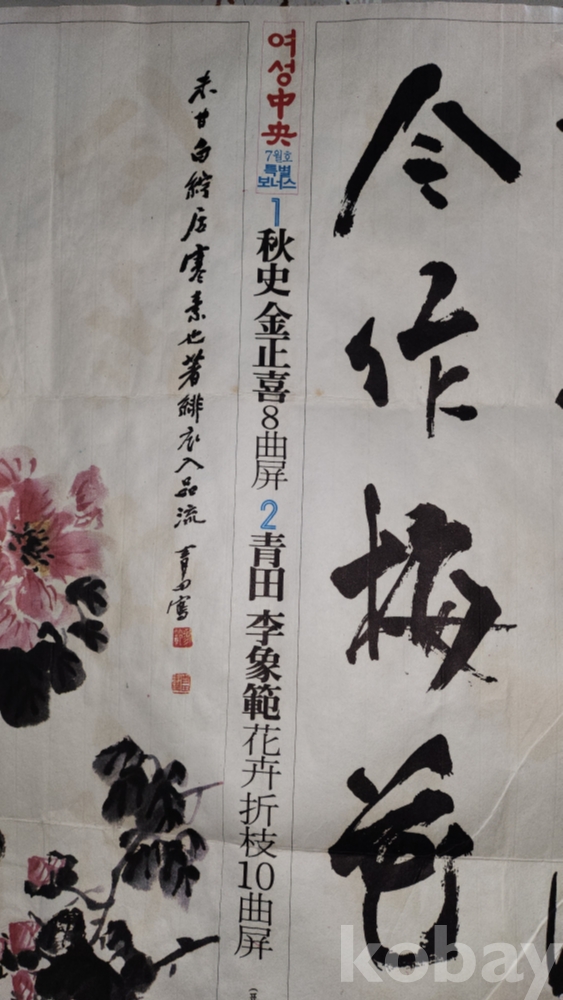 令作梅花
여성中央
7월호
특별
보너스
1 秋史 金正喜 8曲屏
2 青田 李象範 花卉折枝10曲屏
未甘白紵居寒素也著緋衣入品流 青田寫
kobay